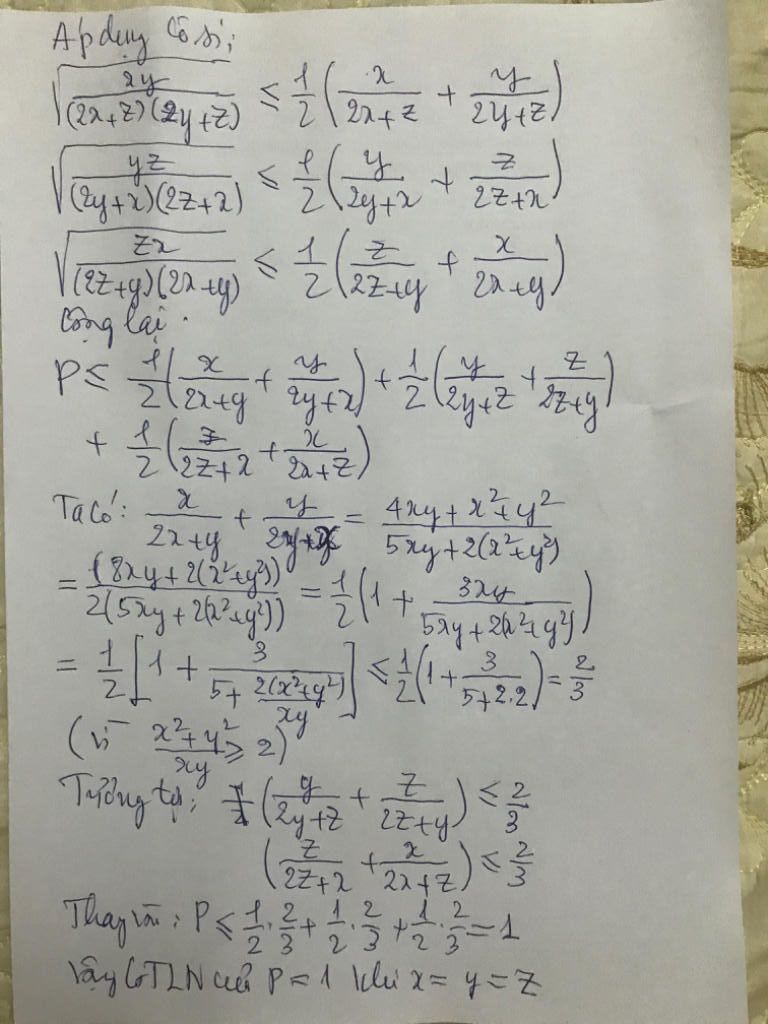 Áp dụng Cô si:
√(xy/((2x+z)(2y+z))) ≤ 1/2 (x/(2x+z) + y/(2y+z))
√(yz/((2y+x)(2z+x))) ≤ 1/2 (y/(2y+x) + z/(2z+x))
√(zx/((2z+y)(2x+y))) ≤ 1/2 (z/(2z+y) + x/(2x+y))
Cộng lại.
P ≤ 1/2 (x/(2x+y) + y/(2y+x)) + 1/2 (y/(2y+z) + z/(2z+y))
+ 1/2 (z/(2z+x) + x/(2x+z))
Ta có: x/(2x+y) + y/(2y+x) = (4xy + x² + y²)/(5xy + 2(x²+y²))
= (8xy + 2(x²+y²))/(2(5xy + 2(x²+y²))) = 1/2 (1 + 3xy/(5xy + 2(x²+y²)))
= 1/2 [1 + 3/(5 + 2(x²+y²)/xy)] ≤ 1/2 (1 + 3/(5+2.2)) = 2/3
(vì (x²+y²)/xy ≥ 2)
Tương tự: (y/(2y+z) + z/(2z+y)) ≤ 2/3
(z/(2z+x) + x/(2x+z)) ≤ 2/3
Thay vào: P ≤ 1/2 . 2/3 + 1/2 . 2/3 + 1/2 . 2/3 = 1
Vậy GTLN của P = 1 khi x = y = z